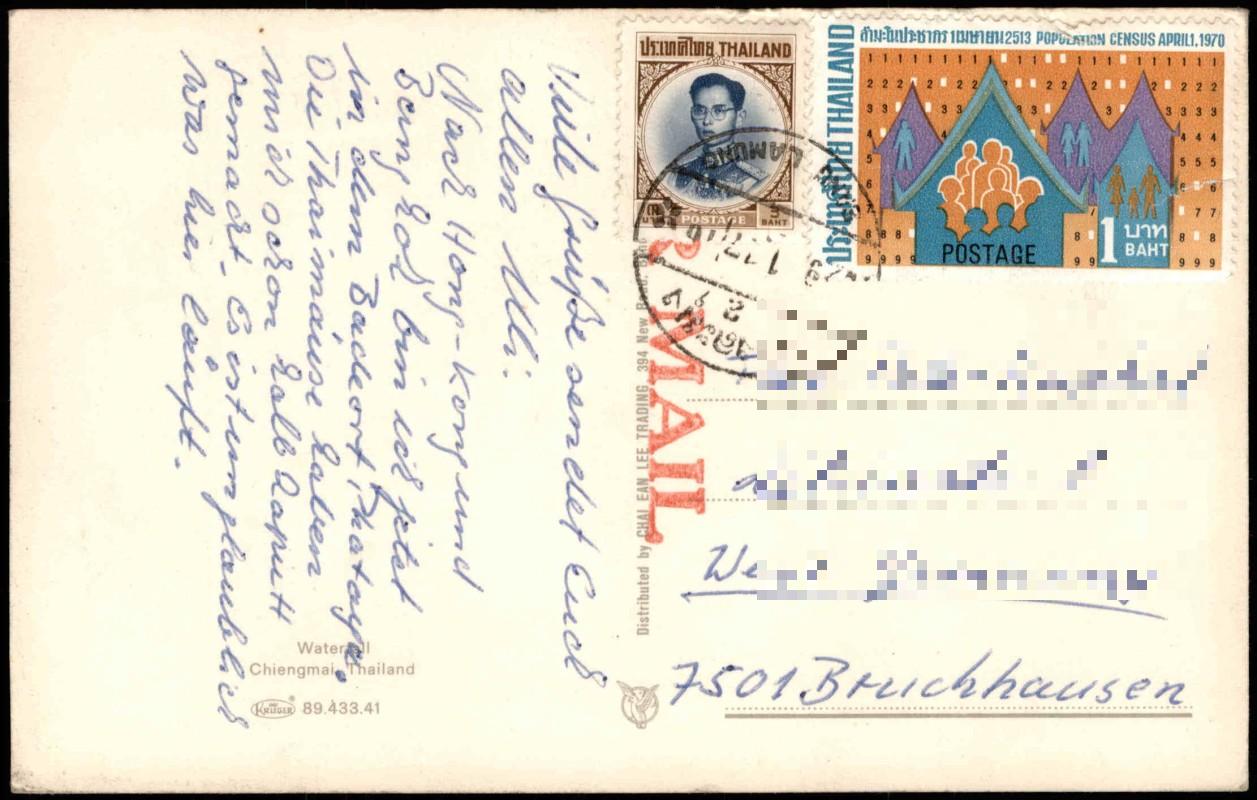 Viele Grüße sendet Euch
allen Uli.
Nach Hong-Kong und
Bangkok bin ich jetzt
in dem Badeort, Phataya.
Die Thaimäuse haben
mich schon halb kaputt
gemacht. Es ist unglaublich
was hier läuft.
Waterfall
Chiengmai, Thailand
KRÜGER 89.433.41
Distributed by CHAI EAN LEE TRADING 394 New Road.
R MAIL
ประเทศไทย THAILAND
POSTAGE
5
BAHT
ประเทศไทย THAILAND
สำมะโนประชากร 1 เมษายน 2513 POPULATION CENSUS APRIL 1, 1970
POSTAGE
1 บาท
BAHT
LAMUNG
7501 Bruchhausen